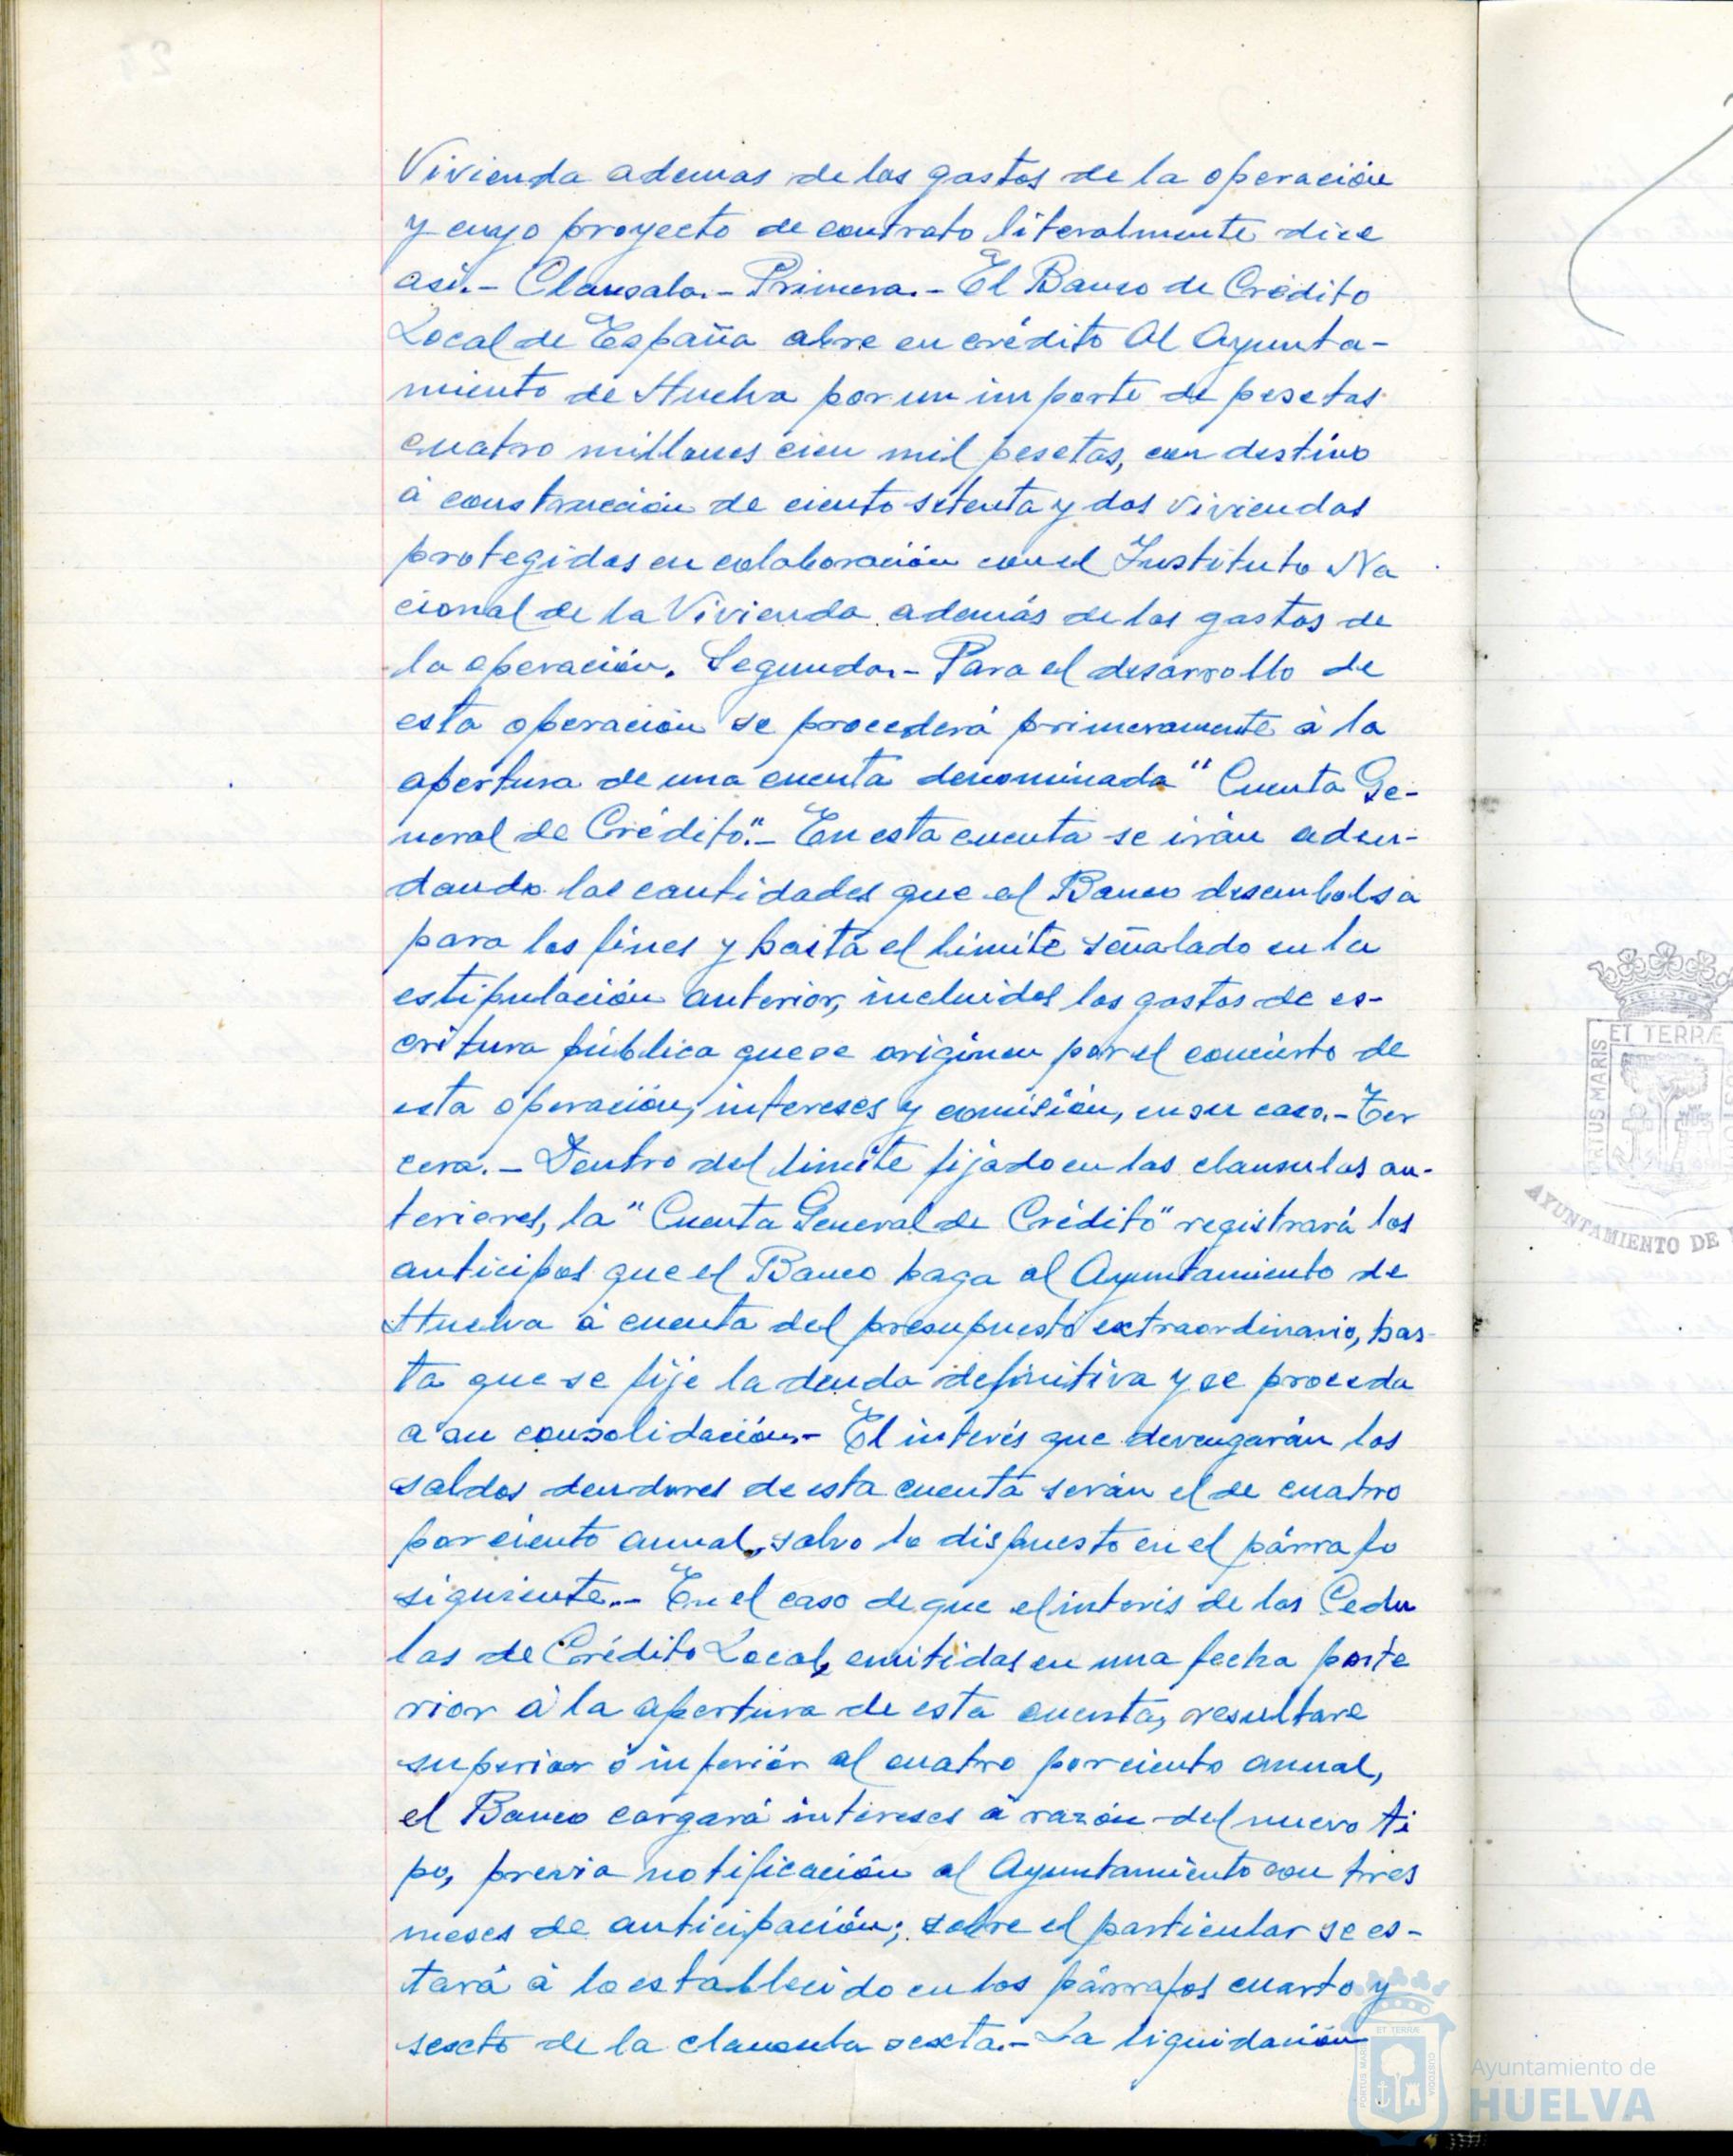 Vivienda ademas de los gastos de la operación
y cuyo proyecto de contrato literalmente dice
asi.- Clausala.- Primera.- El Banco de Crédito
Local de España abre en crédito Al Ayunta-
miento de Huelva por un importe de pesetas
cuatro millones cien mil pesetas, con destino
á construcción de ciento setenta y dos viviendas
protegidas en colaboración con el Instituto Na
cional de la Vivienda además de los gastos de
la operación. Segunda.- Para el desarrollo de
esta operación se procederá primeramente á la
apertura de una cuenta denominada "Cuenta Ge-
neral de Crédito".- En esta cuenta se irán adeu-
dando las cantidades que el Banco desembolsa
para los fines y hasta el limite señalado en la
estipulación anterior, incluidos los gastos de es-
critura pública que se originen por el concierto de
esta operación, intereses y comisión, en su caso.- Ter
cera.- Dentro del limite fijado en las clausulas an-
teriores, la "Cuenta General de Crédito" registrará los
anticipos que el Banco haga al Ayuntamiento de
Huelva á cuenta del presupuesto extraordinario, has-
ta que se fije la deuda definitiva y se proceda
a su consolidación.- El interés que devengarán los
saldos deudores de esta cuenta serán el de cuatro
por ciento anual, salvo lo dispuesto en el párrafo
siguiente.- En el caso de que el interés de las Cedu
las de Crédito Local, emitidas en una fecha poste
rior á la apertura de esta cuenta, resultare
superior ó inferior al cuatro por ciento anual,
el Banco cargará intereses á razón del nuevo ti
po, previa notificación al Ayuntamiento con tres
meses de anticipación; sobre el particular se es-
tará á lo establecido en los párrafos cuarto y
sexto de la clausula sexta.- La liquidación
ET TERRÆ
PORTUS MARIS
AYUNTAMIENTO DE
ET TERRÆ
PORTUS MARIS
CUSTODIA
Ayuntamiento de
HUELVA